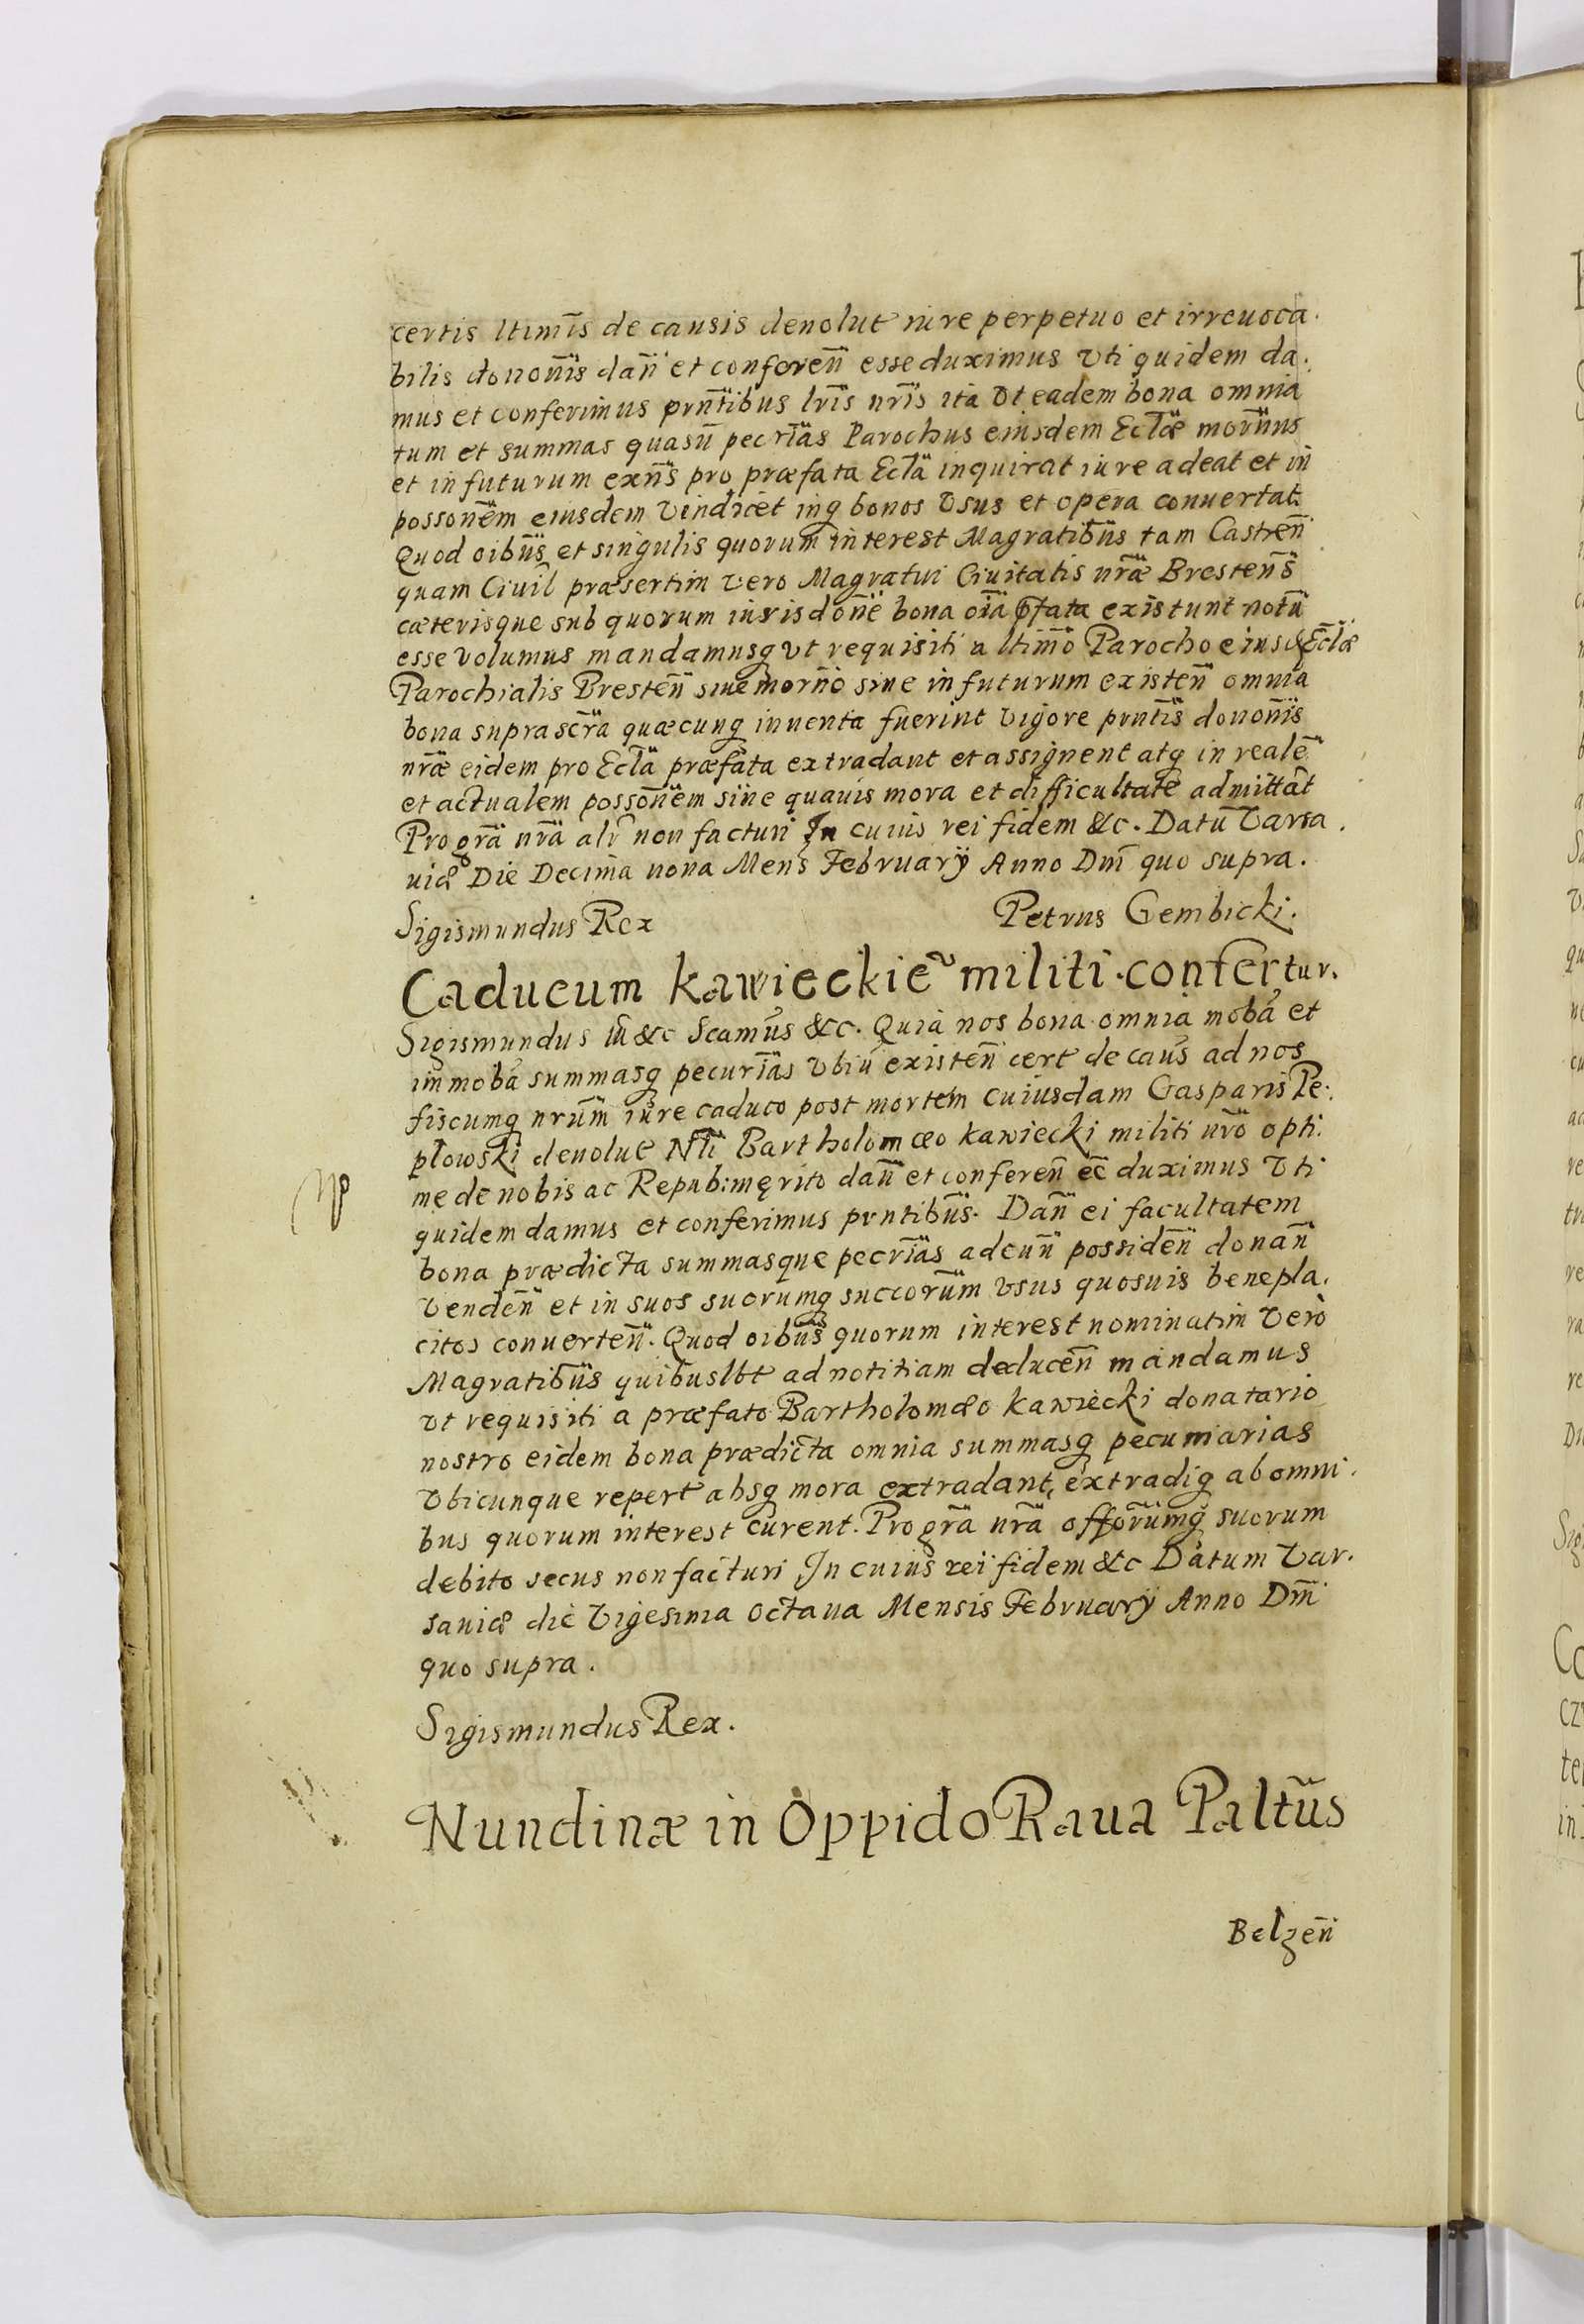 certis ltimĩs de causis deuolut iure perpetuo et irreuoca.
bilis dononĩs dañ et confereñ esse duximus vti quidem da.
mus et conferimus pnñtibus lrĩs nrĩs ita vt eadem bona omnia
tum et summas quasũ pecrĩas Parochus eiusdem Eclæ̃ morñus
et in futurum exñs pro præfata Eclã inquirat iure adeat et in
possonẽm eiusdem vindicet inq bonos vsus et opera conuertat.
Quod oibũs et singulis quorum interest Magratibũs tam Castreñ
quam Ciuil̃ præsertim vero Magratui Ciuitatis nræ̃ Brestens̃
cæterisque sub quorum iurisdonẽ bona oĩa pfata existunt notũ
esse volumus mandamusq vt requisiti a ltimõ Parocho eiusd Eclæ̃
Parochialis Bresteñ siue morño siue in futurum existeñ omnia
bona suprascrã quæcunq inuenta fuerint vigore pntĩs dononĩs
nræ̃ eidem pro Eclã præfata extradant et assignent atq in realẽ
et actualem possonẽm sine quauis mora et difficultate admittãt
Pro grã nrã alr̃ non facturi In cuius rei fidem &c. Datũ Varsa.
uiæ Die Decima nona Mens̃ February Anno Dnĩ quo supra.
Sigismundus Rex Petrus Gembicki.
Caducum Kawieckieͧ militi confertur.
Sigismundus iĩi &c Scamus̃ &c. Quia nos bona omnia mobã et
immobã summasq pecurĩas vbiũ existeñ cert de caus̃ ad nos
fiscumq nrũm iure caduco post mortem cuiusdam Gasparis Pe.
płowski deuolut Nlĩ Bartholomæo Kawiecki militi nrõ opti.
me de nobis ac Repub: merito dañ et confereñ eẽ duximus vti
quidem damus et conferimus pntibũs. Dañ ei facultatem
bona prædicta summasque pecrĩas adeuñ possideñ donañ
vendeñ et in suos suorumq succorũm vsus quosuis benepla.
citos conuerteñ. Quod oibũs quorum interest nominatim vero
Magratibũs quibuslbt ad notitiam deduceñ mandamus
vt requisiti a præfato Bartholomæo Kawiecki donatario
nostro eidem bona prædicta omnia summasq pecuniarias
vbicunque repert absq mora extradant, extradiq ab omni.
bus quorum interest curent. Pro grã nrã offorũmq suorum
debito secus non facturi In cuius rei fidem &c Datum Var.
sauiæ die Vigesima octaua Mensis February Anno Dnĩ
quo supra.
Sigismundus Rex.
Nundinæ in Oppido Raua Paltũs
Belzeñ